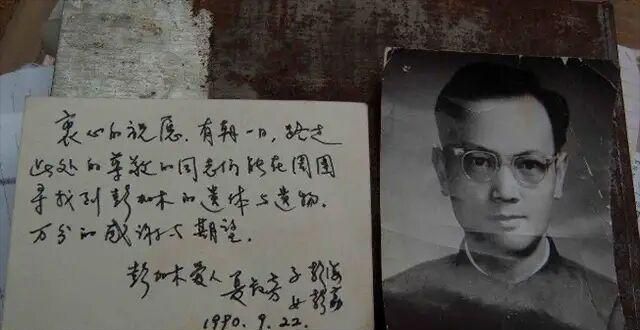 衷心的祝愿，有朝一日，路过
此处的尊敬的同志们能在周围
寻找到彭加木的遗体与遗物，
万分的感谢与期望。
彭加木爱人 夏叔芳 子 彭海
女 彭荔
1990.9.22.